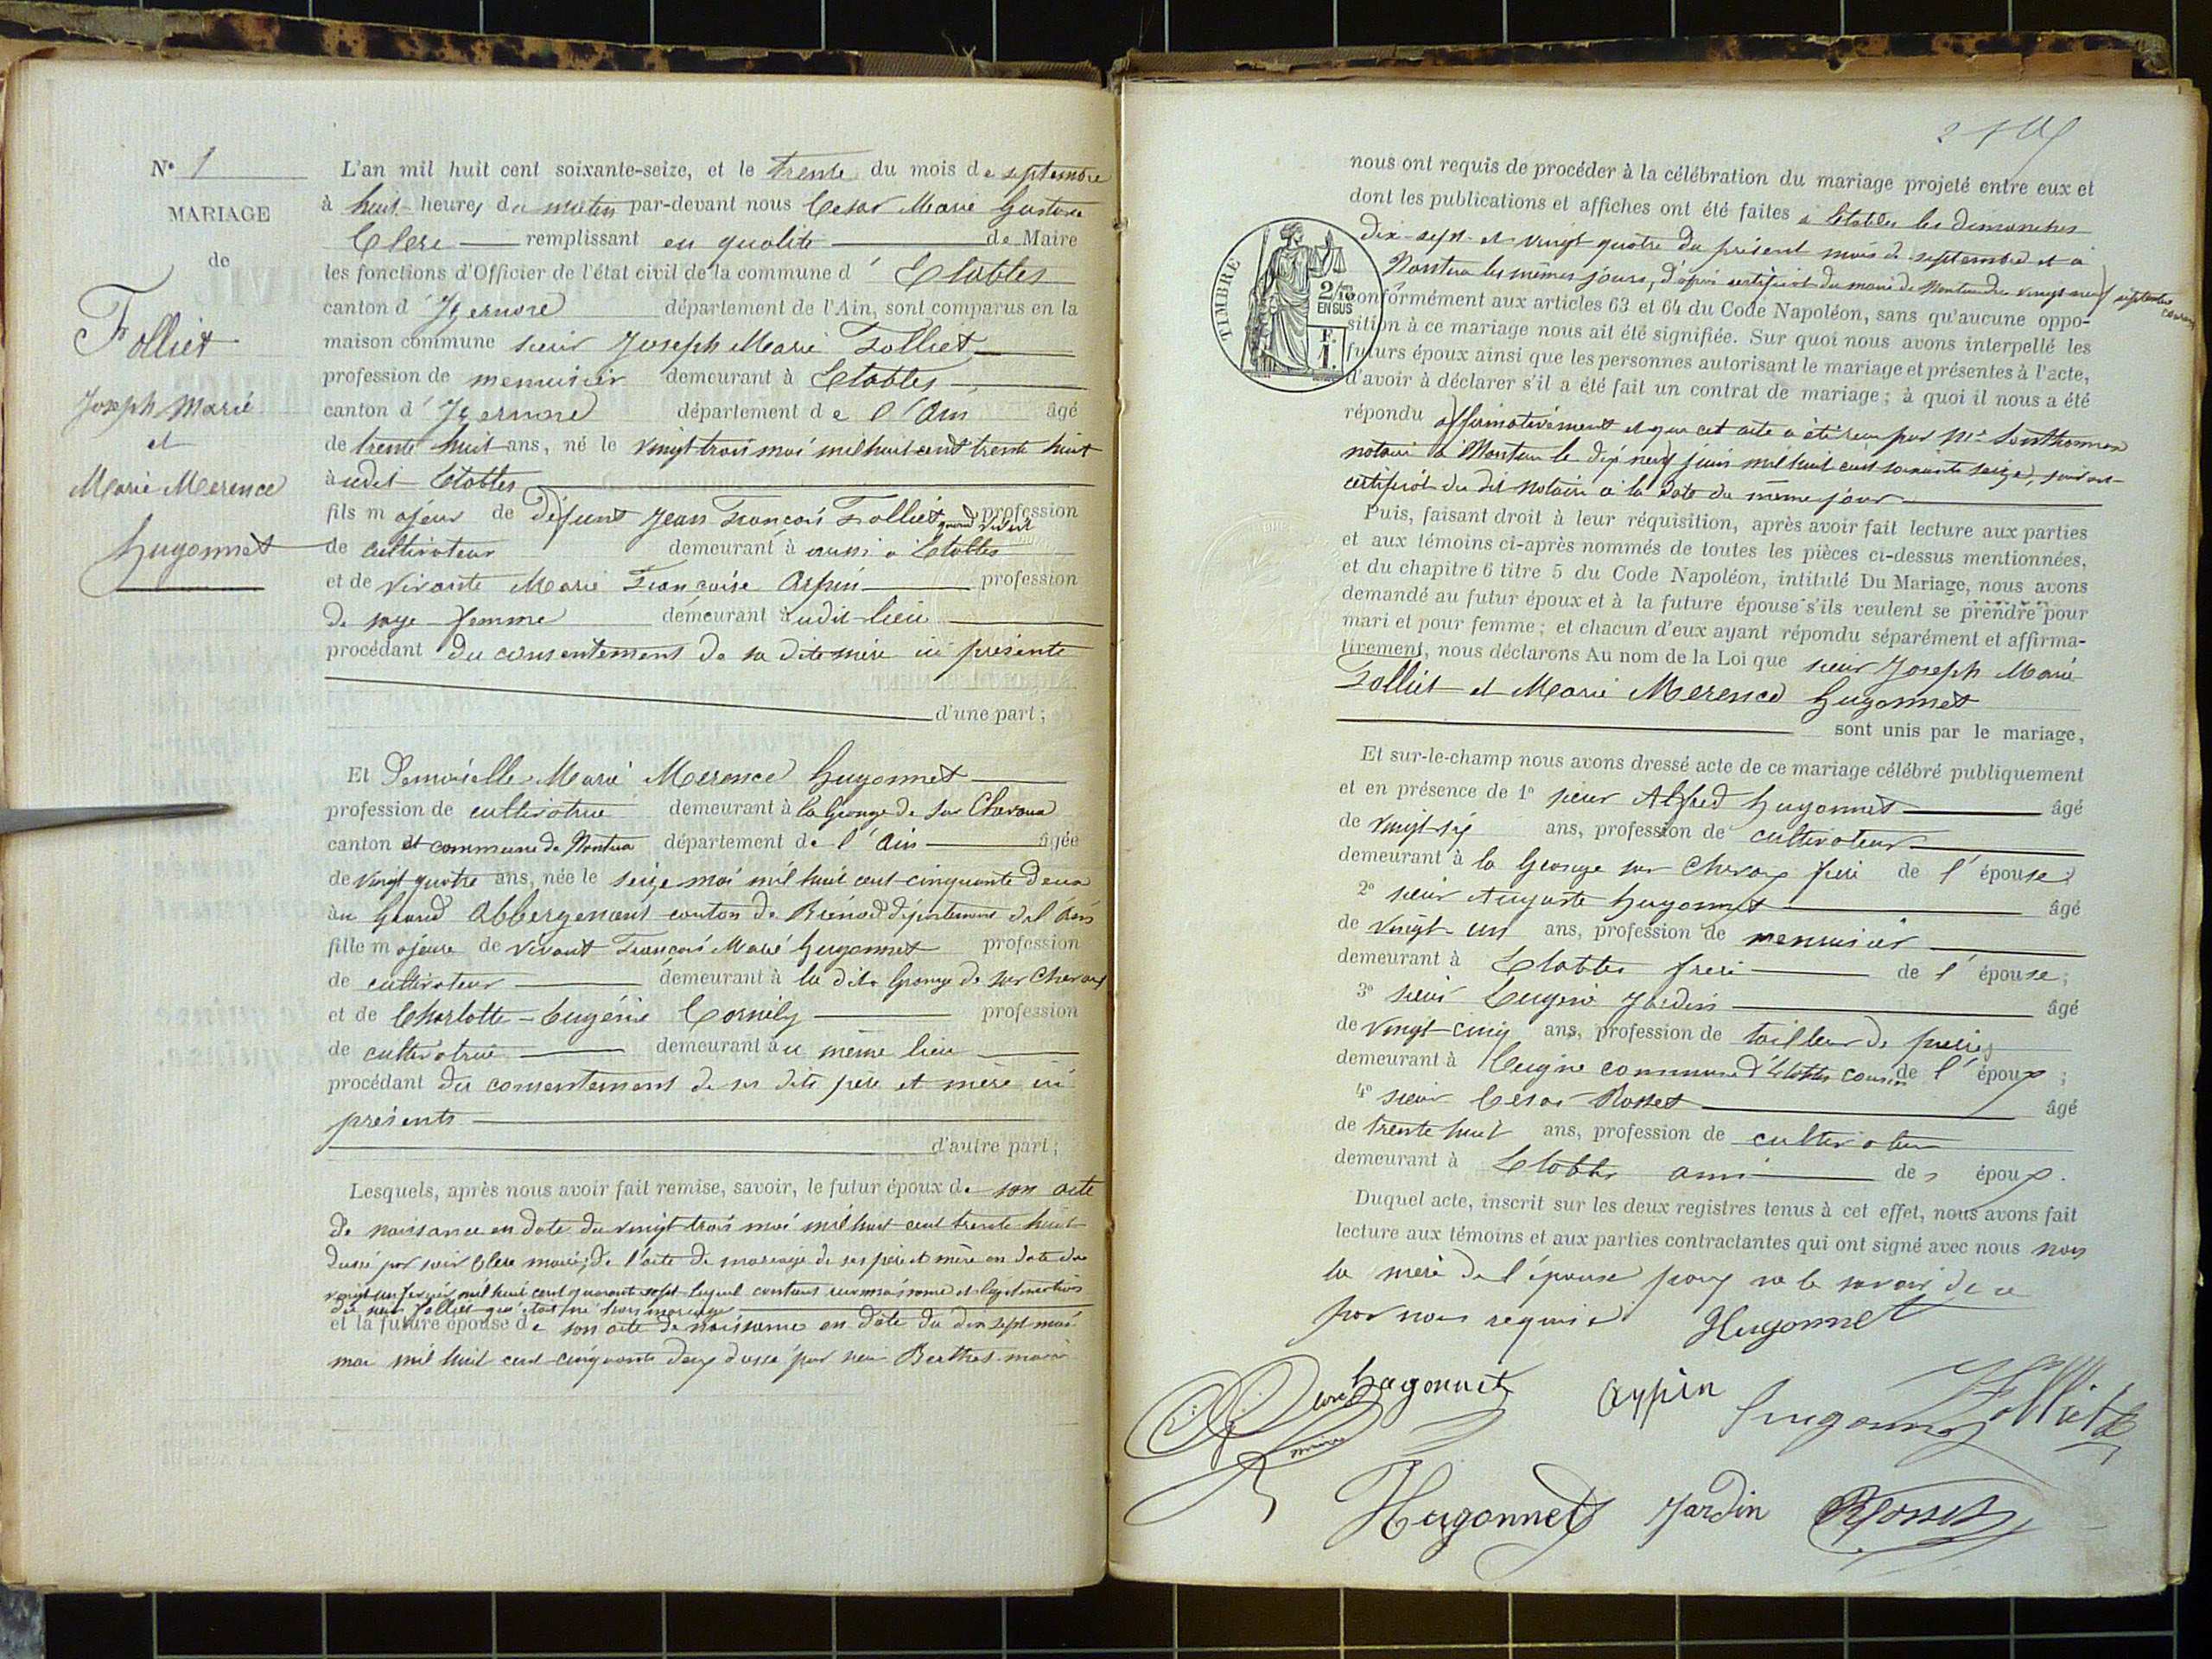 N° 1
MARIAGE
de
Folliet
Joseph Marie
et
Marie Merence
Hugonnet
L'an mil huit cent soixante-seize, et le trente du mois de septembre
à huit heures du matin par-devant nous Cesar Marie Gustave
Clerc remplissant en qualité de Maire
les fonctions d'Officier de l'état civil de la commune d' Etables
canton d' Izernore département de l'Ain, sont comparus en la
maison commune sieur Joseph Marie Folliet
profession de menuisier demeurant à Etables
canton d' Izernore département de l'Ain âgé
de trente huit ans, né le vingt trois mai mil huit cent trente huit
audit Etables
fils majeur de défunt Jean François Folliet quand vivait profession
de cultivateur demeurant à aussi à Etables
et de vivante Marie Françoise Arpin profession
de sage-femme demeurant audit lieu
procédant du consentement de sa dite mère ici présente
d'une part;
Et Demoiselle Marie Merence Hugonnet
profession de cultivatrice demeurant à la Grange de sur Chevoux
canton et commune de Nantua département de l'Ain âgée
de vingt quatre ans, née le seize mai mil huit cent cinquante deux
au Grand Abbergement canton de Brénod département de l'Ain
fille majeure de vivant François Marie Hugonnet profession
de cultivateur demeurant à la dite Grange de sur Chevoux
et de Charlotte-Eugénie Cornily profession
de cultivatrice demeurant au même lieu
procédant du consentement de ses dits père et mère ici
présents
d'autre part;
Lesquels, après nous avoir fait remise, savoir, le futur époux de son acte
de naissance en date du vingt trois mai mil huit cent trente huit
dressé par sieur Clerc maire; de l'acte de mariage de ses père et mère en date du
vingt un février mil huit cent quarante sept lequel contient reconnaissance et légitimation
du sieur Folliet qui était né hors mariage
et la future épouse de son acte de naissance en date du dix sept mai
mai mil huit cent cinquante deux dressé par sieur Berthet maire
nous ont requis de procéder à la célébration du mariage projeté entre eux et
dont les publications et affiches ont été faites à Etables les dimanches
dix-sept et vingt quatre du présent mois de septembre et à
Nantua les mêmes jours, d'après certificat du maire de Nantua du vingt neuf septembre courant
conformément aux articles 63 et 64 du Code Napoléon, sans qu'aucune oppo-
sition à ce mariage nous ait été signifiée. Sur quoi nous avons interpellé les
futurs époux ainsi que les personnes autorisant le mariage et présentes à l'acte,
d'avoir à déclarer s'il a été fait un contrat de mariage; à quoi il nous a été
répondu affirmativement et que cet acte a été reçu par Me Southonnax
notaire à Nantua le dix neuf juin mil huit cent soixante seize, suivant
certificat du dit notaire à la date du même jour
TIMBRE
2/10 EN SUS
F. 1.
Puis, faisant droit à leur réquisition, après avoir fait lecture aux parties
et aux témoins ci-après nommés de toutes les pièces ci-dessus mentionnées,
et du chapitre 6 titre 5 du Code Napoléon, intitulé Du Mariage, nous avons
demandé au futur époux et à la future épouse s'ils veulent se prendre pour
mari et pour femme; et chacun d'eux ayant répondu séparément et affirma-
tivement, nous déclarons Au nom de la Loi que sieur Joseph Marie
Folliet et Marie Merence Hugonnet
sont unis par le mariage,
Et sur-le-champ nous avons dressé acte de ce mariage célébré publiquement
et en présence de 1° sieur Alfred Hugonnet âgé
de vingt six ans, profession de cultivateur
demeurant à la Grange sur Chevoux frère de l'épouse
2° sieur Auguste Hugonnet âgé
de vingt-un ans, profession de menuisier
demeurant à Etables frère de l'épouse;
3° sieur Eugène Jardin âgé
de vingt-cinq ans, profession de tailleur de pierres
demeurant à Ceigne commune d'Etables cousin de l'époux;
4° sieur César Rosset âgé
de trente huit ans, profession de cultivateur
demeurant à Etables ami des époux.
Duquel acte, inscrit sur les deux registres tenus à cet effet, nous avons fait
lecture aux témoins et aux parties contractantes qui ont signé avec nous non
la mère de l'épouse pour ne le savoir de ce
par nous requise
Hugonnet
Clerc maire
Hugonnet
Arpin
Hugonnet
Folliet
Hugonnet
Jardin
Rosset